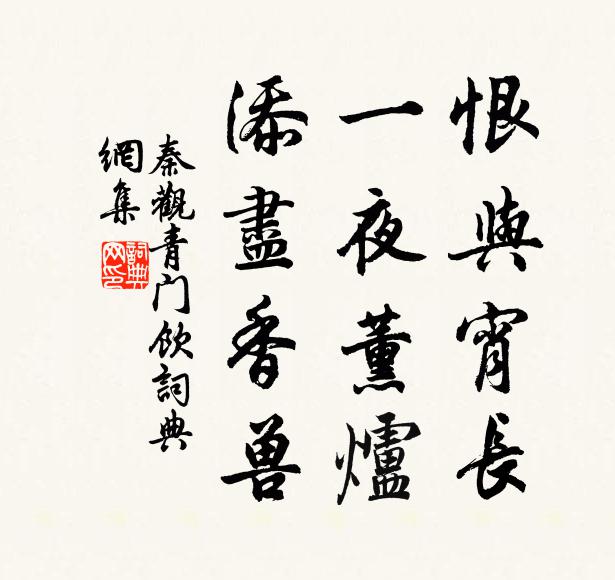 恨與宵長
一夜薰爐
添盡香兽
秦觀青门飲詞典
網集
詞典網印